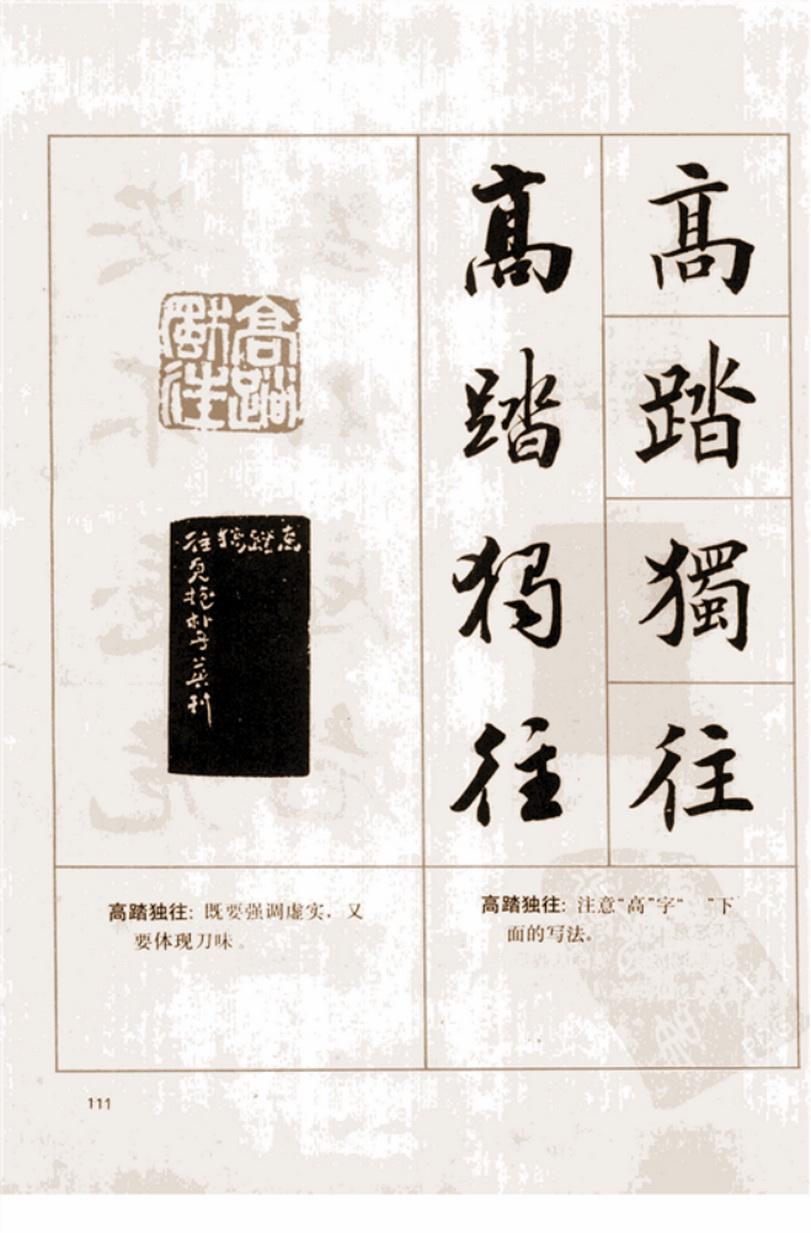 高
踏
獨
往
高
踏
獨
往
高踏
獨往
高踏独往：既要强调虚实，又
要体现刀味。
高踏独往：注意“高”字“ ”下
面的写法。
111